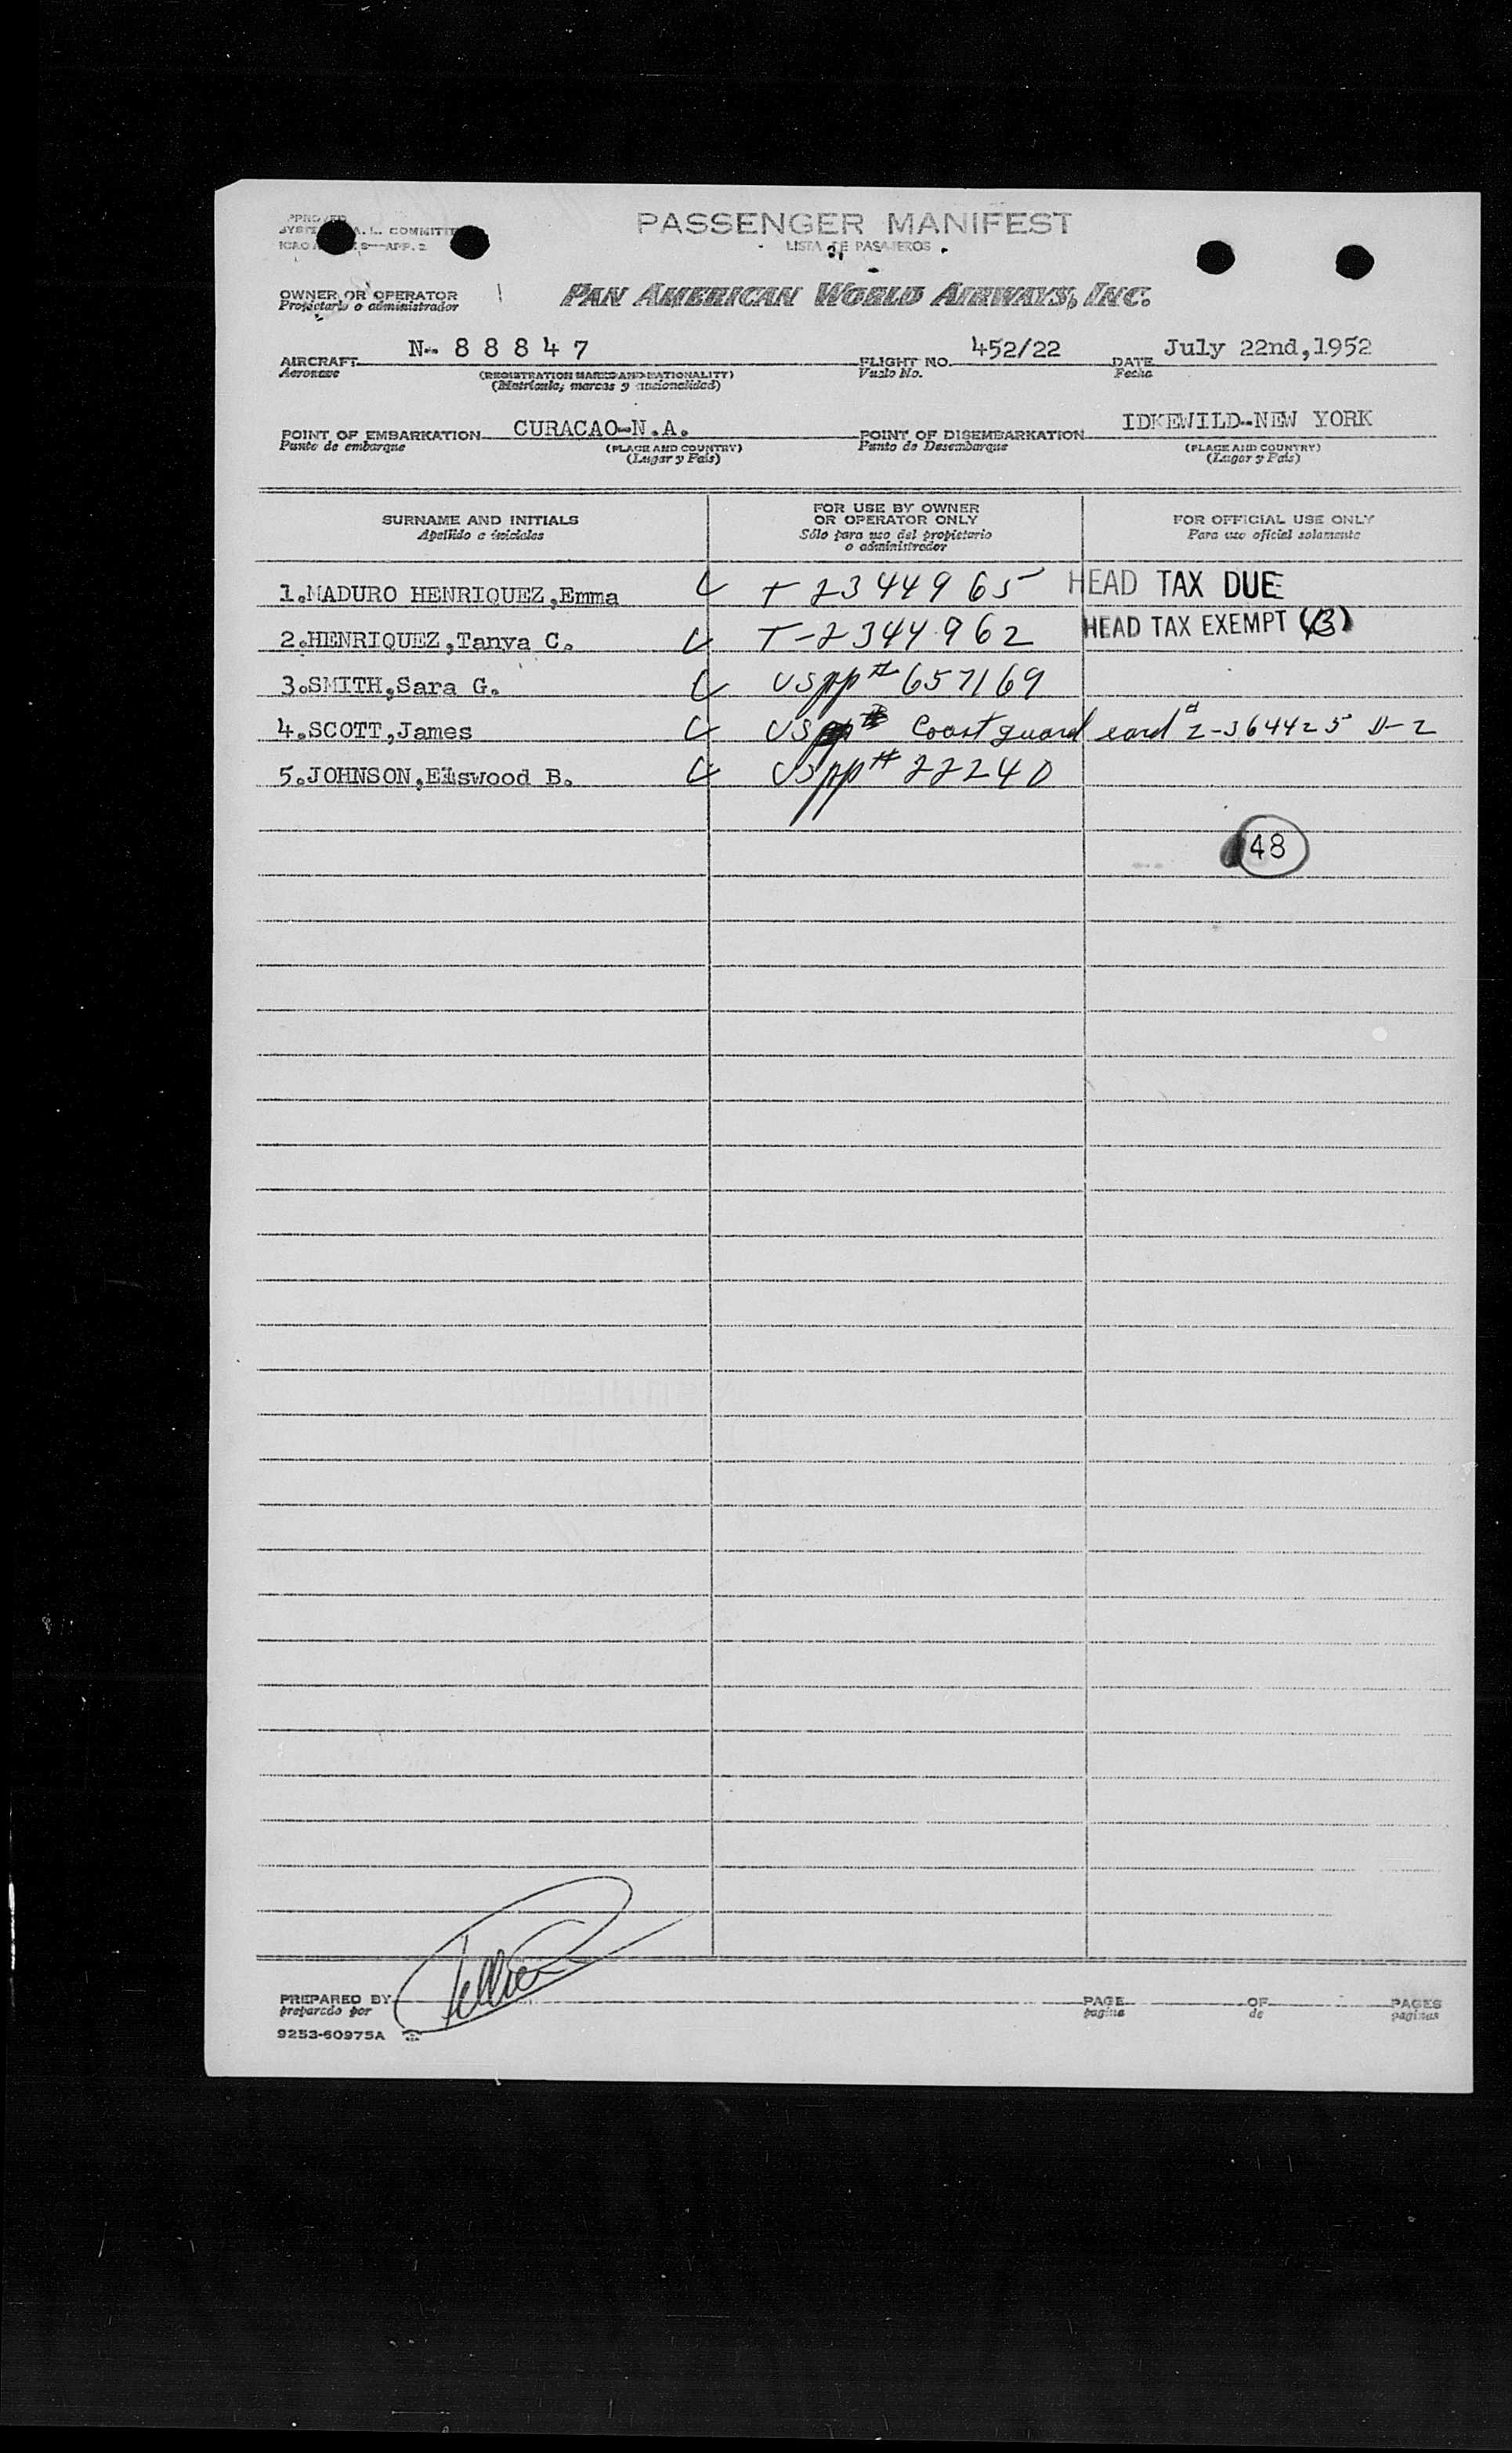 PASSENGER MANIFEST
LISTA DE PASAJEROS
OWNER OR OPERATOR
Propietario o administrador
PAN AMERICAN WORLD AIRWAYS, INC.
AIRCRAFT N-88847 FLIGHT NO. 452/22 DATE July 22nd,1952
Aeronave (REGISTRATION MARKS AND NATIONALITY) Vuelo No. Fecha
(Matrícula, marcas y nacionalidad)
POINT OF EMBARKATION CURACAO-N.A. POINT OF DISEMBARKATION IDKEWILD-NEW YORK
Punto de embarque (PLACE AND COUNTRY) Punto de Desembarque (PLACE AND COUNTRY)
(Lugar y País) (Lugar y País)
SURNAME AND INITIALS
Apellido e iniciales
FOR USE BY OWNER
OR OPERATOR ONLY
Sólo para uso del propietario
o administrador
FOR OFFICIAL USE ONLY
Para uso oficial solamente
1.MADURO HENRIQUEZ,Emma T-2344965 HEAD TAX DUE
2.HENRIQUEZ,Tanya C. T-2344962 HEAD TAX EXEMPT (B)
3.SMITH,Sara G. USpp# 657169
4.SCOTT,James US Coast guard card # Z-364425 D-2
5.JOHNSON,Elswood B. USpp# 22240
48
PREPARED BY PAGE OF PAGES
preparado por pagina de paginas
9253-60975A